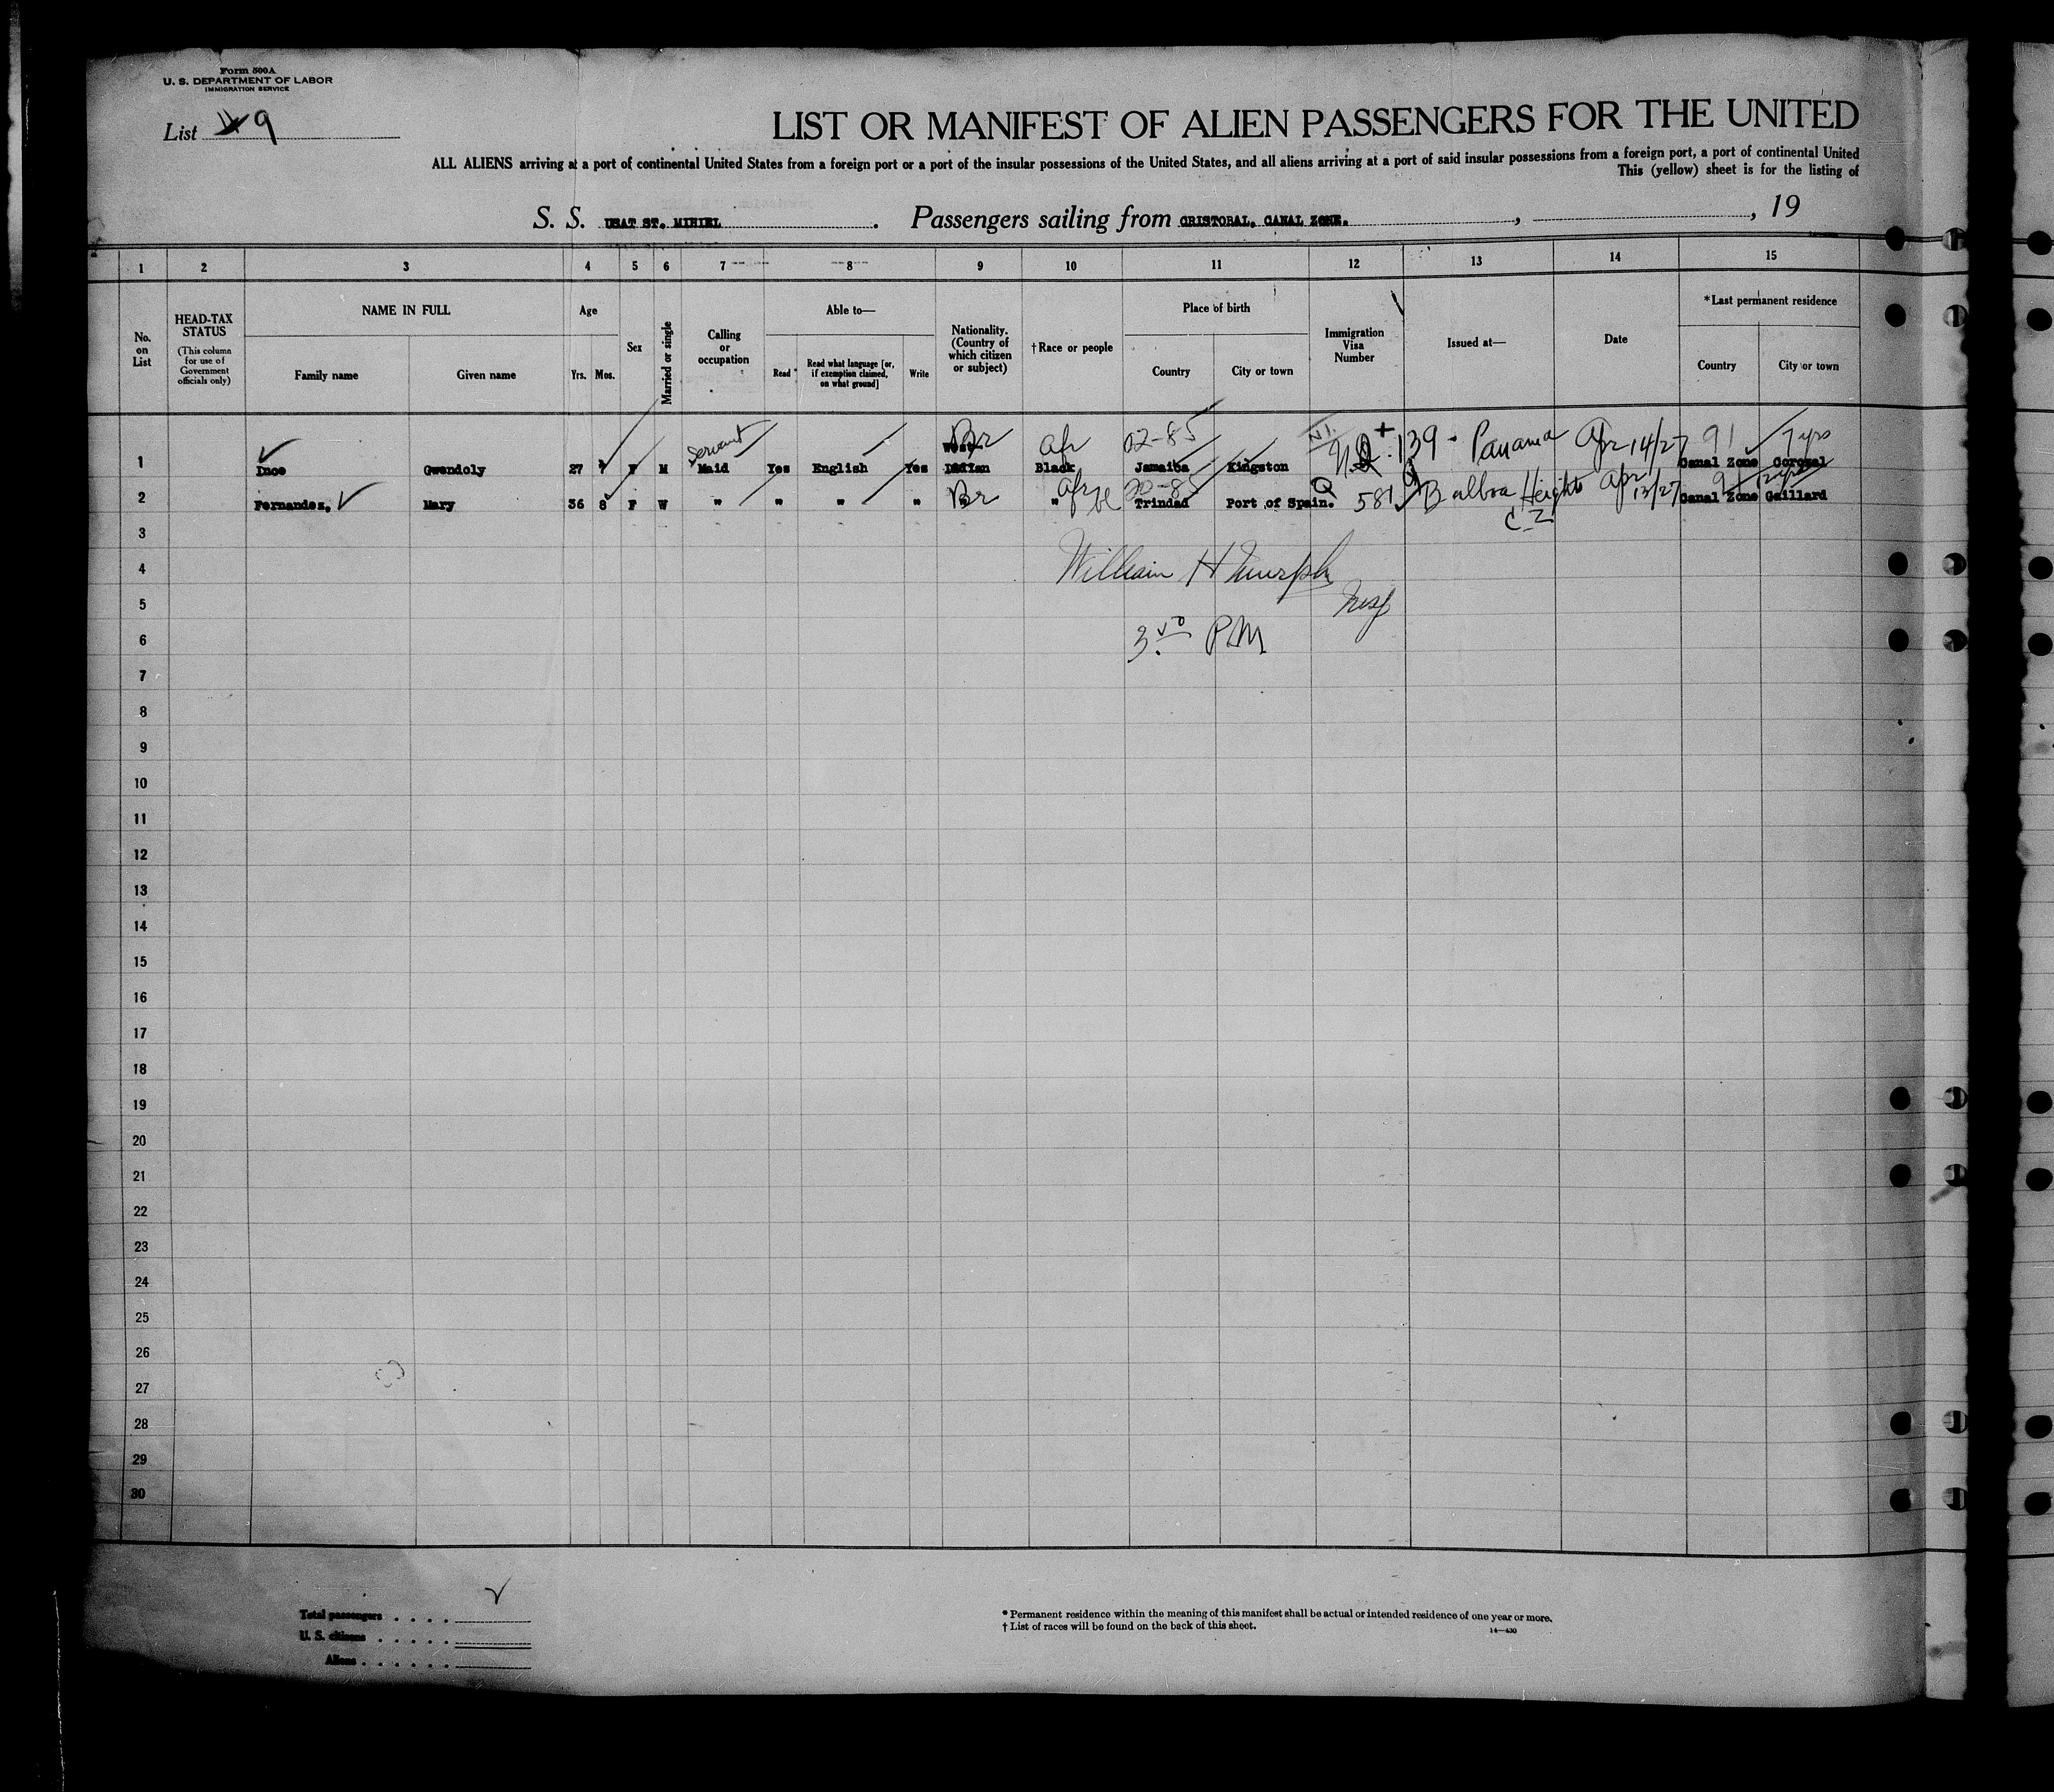 Form 500A
U. S. DEPARTMENT OF LABOR
IMMIGRATION SERVICE
List 9
LIST OR MANIFEST OF ALIEN PASSENGERS FOR THE UNITED
ALL ALIENS arriving at a port of continental United States from a foreign port or a port of the insular possessions of the United States, and all aliens arriving at a port of said insular possessions from a foreign port, a port of continental United
This (yellow) sheet is for the listing of
S. S. USAT ST. MIHIEL. Passengers sailing from CRISTOBAL, CANAL ZONE. , , 19
1 2 3 4 5 6 7 8 9 10 11 12 13 14 15
No. on List
HEAD-TAX STATUS
(This column for use of Government officials only)
NAME IN FULL
Family name
Given name
Age
Yrs. Mos.
Sex
Married or single
Calling or occupation
Able to—
Read
Read what language [or, if exemption claimed, on what ground]
Write
Nationality. (Country of which citizen or subject)
†Race or people
Place of birth
Country
City or town
Immigration Visa Number
Issued at—
Date
*Last permanent residence
Country
City or town
servant Br Afr 02-85 139 - Panama Apr 14/27 91 7 yrs
1 Gwendoly 27 F M Maid Yes English Yes West Indian Black Jamaica Kingston Canal Zone Corozal
Br Afr 581 Balboa Heights Apr 13/27
2 Fernandez, Mary 36 8 F W " " " " " Trindad Port of Spain. Canal Zone Gaillard
C-Z
3
4 William H Murphy
5 Insp
6 3 PM
7
8
9
10
11
12
13
14
15
16
17
18
19
20
21
22
23
24
25
26
27
28
29
30
Total passengers . . . .
U. S. citizens . . . . .
Aliens . . . . . .
* Permanent residence within the meaning of this manifest shall be actual or intended residence of one year or more.
† List of races will be found on the back of this sheet.
14—430